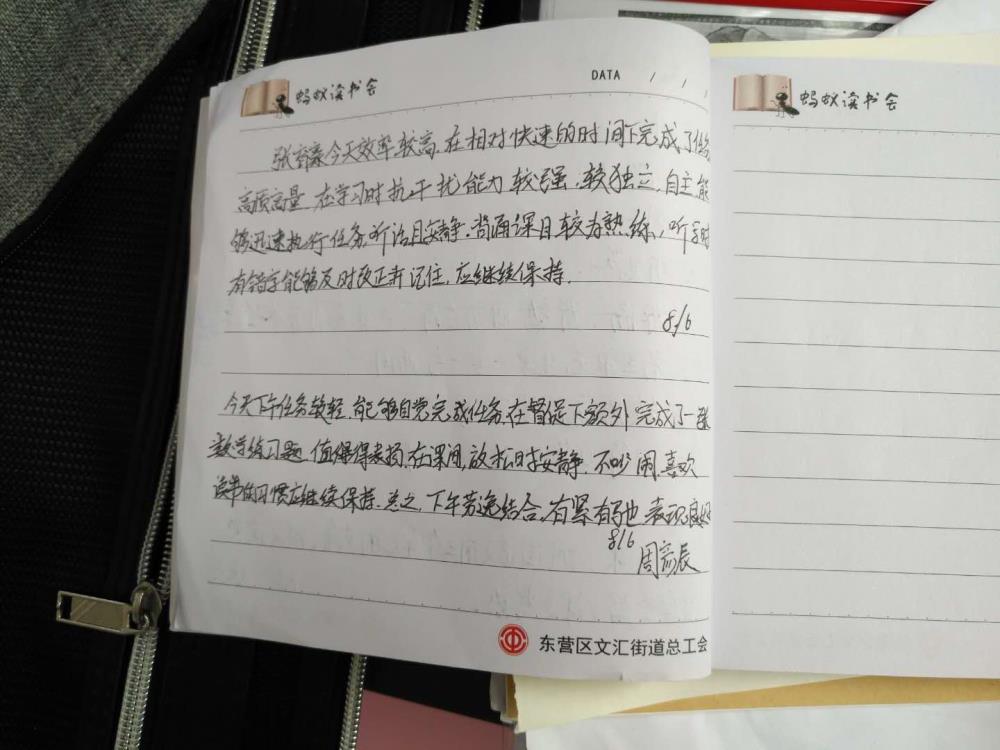 蚂蚁读书会
DATA / /
张睿豪今天效率较高,在相对快速的时间下完成了任务
高质高量,在学习时抗干扰能力较强,较独立,自主,能
够迅速执行任务,听话且安静,背诵课目较为熟练,听写时
有错字能够及时改正并记住,应继续保持.
8/6
今天下午任务较轻,能够自觉完成任务,在督促下额外完成了一张
数学练习题,值得表扬,在课间,放松时安静,不吵闹,喜欢
读书的习惯应继续保持.总之,下午劳逸结合,有紧有弛,表现良好
8/6
周彦辰
东营区文汇街道总工会
蚂蚁读书会